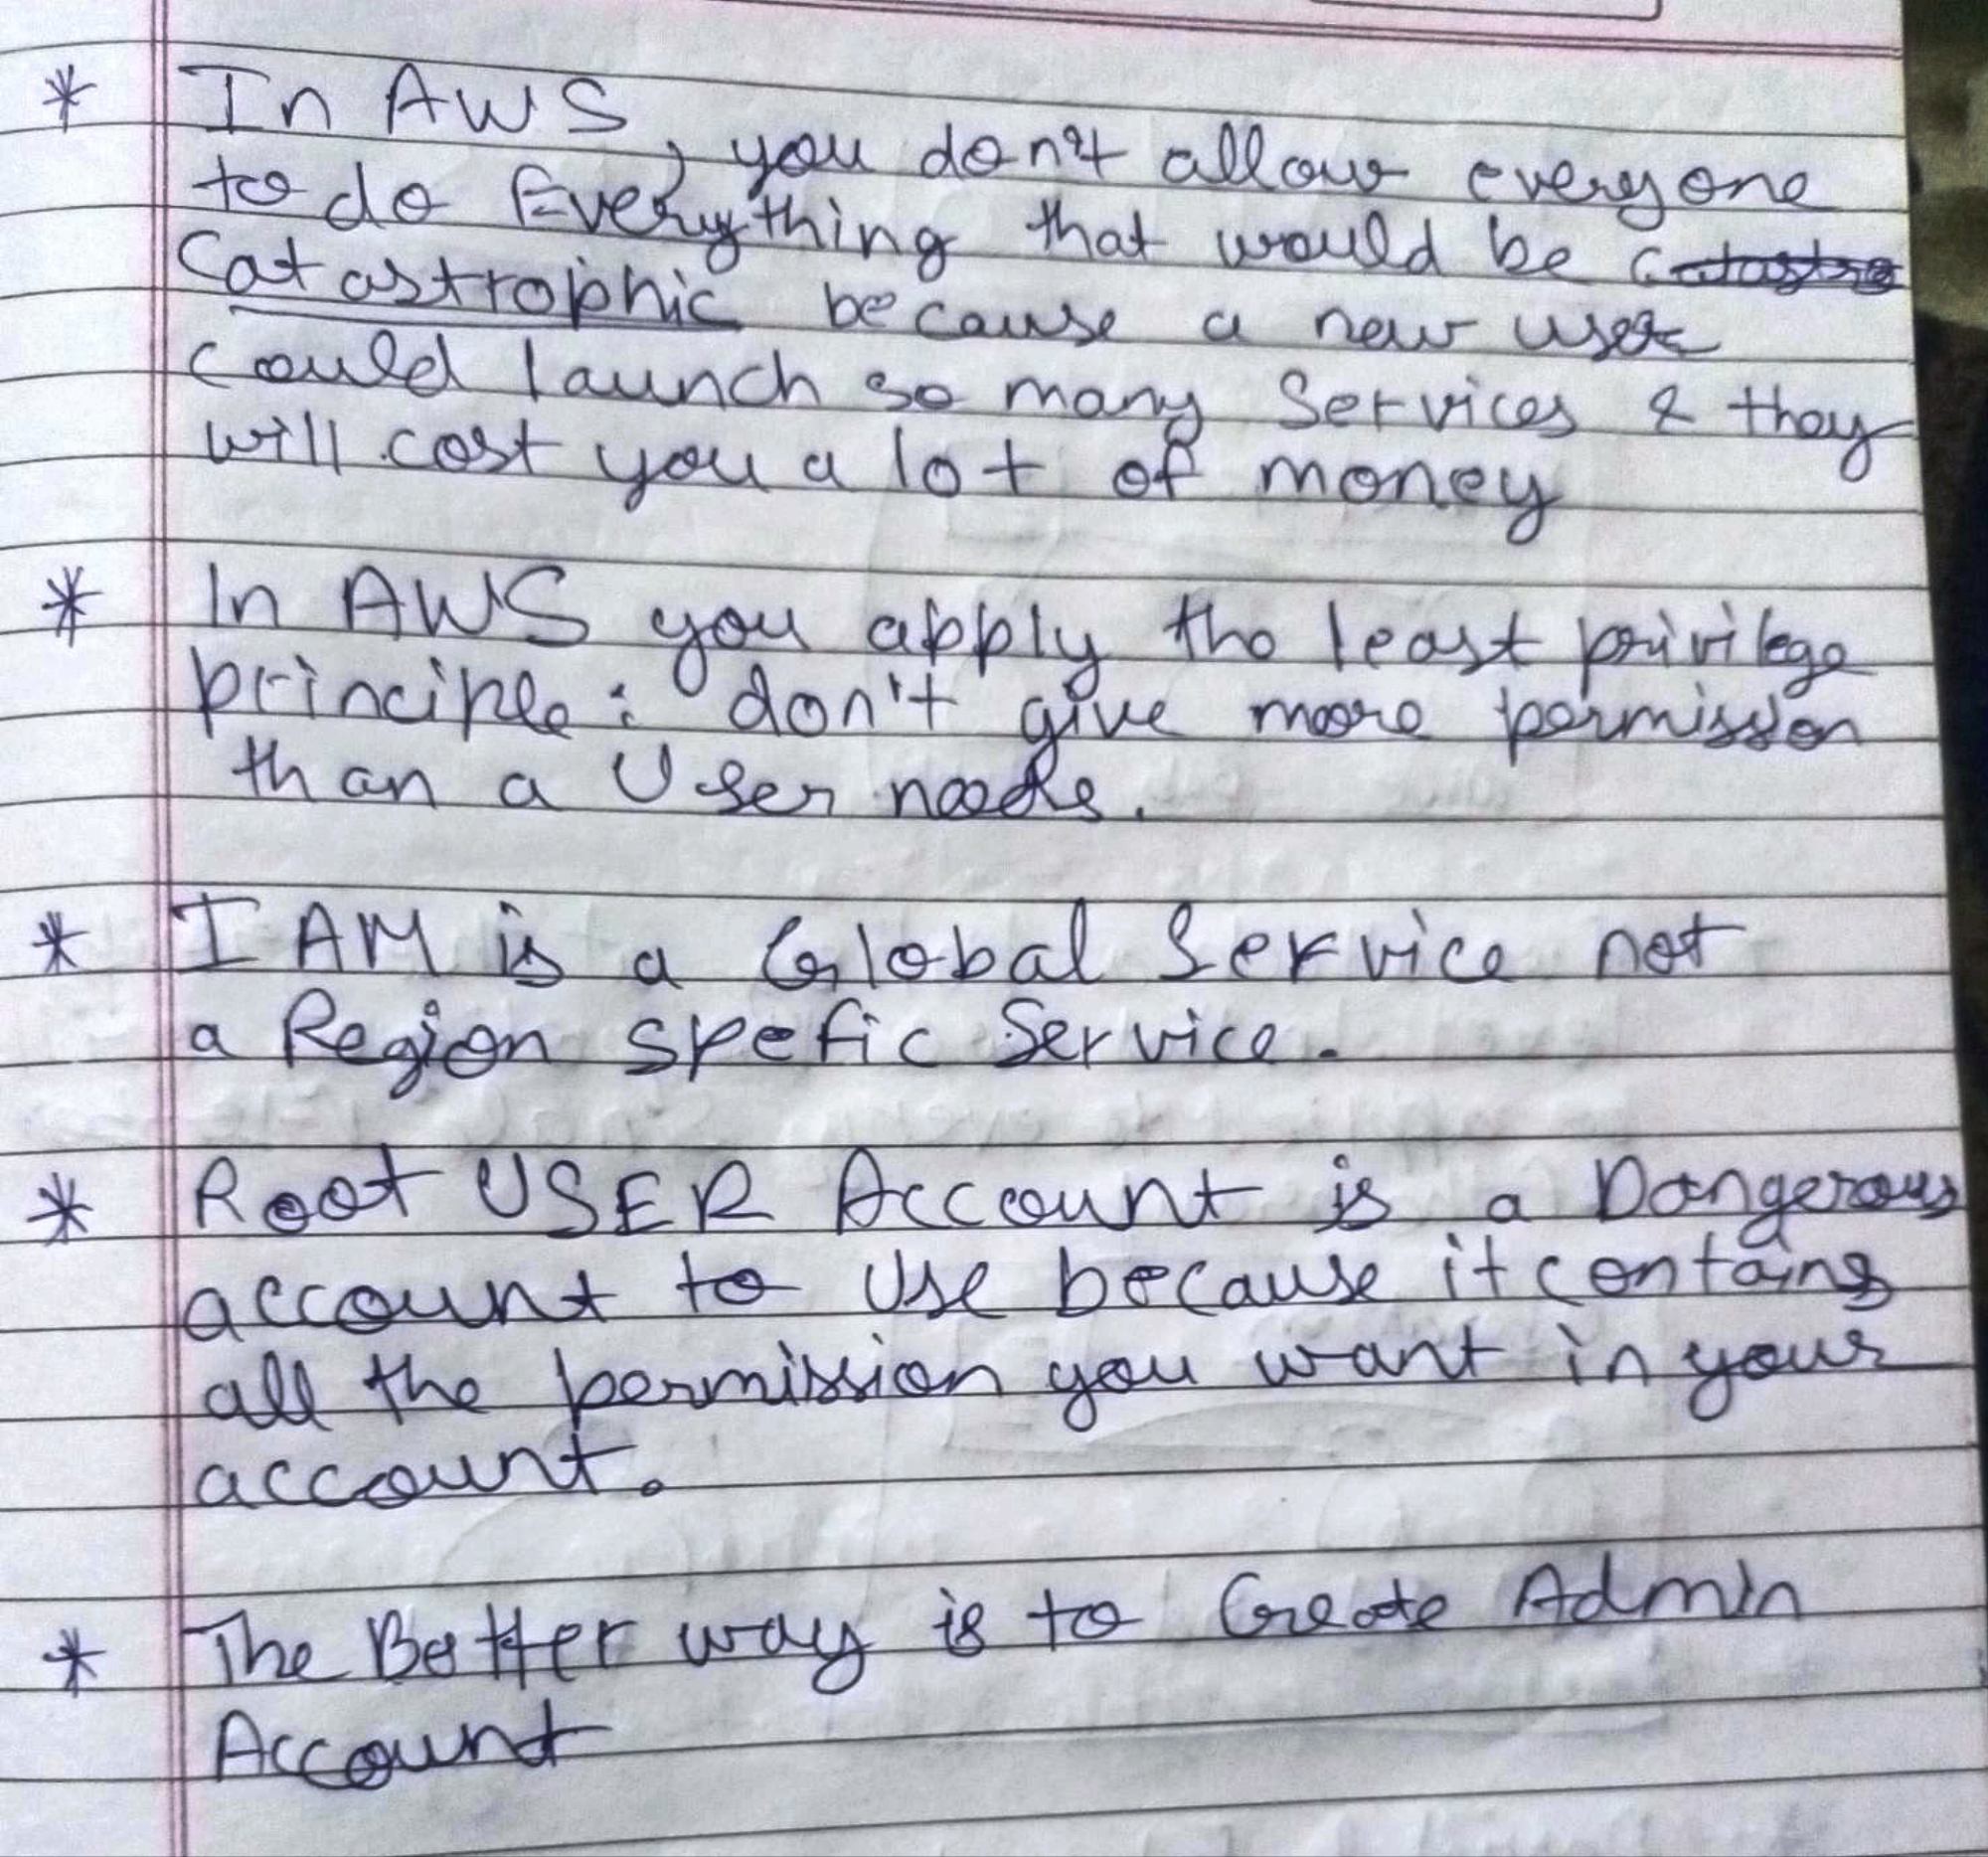 * In AWS, you don't allow everyone
to do Everything that would be
Catastrophic because a new user
could launch so many Services & they
will cost you a lot of money
* In AWS you apply the least privilege
principle: don't give more permission
than a User needs.
* IAM is a Global Service not
a Region spefic Service.
* Root USER Account is a Dangerous
account to Use because it contains
all the permission you want in your
account.
* The Better way is to Create Admin
Account